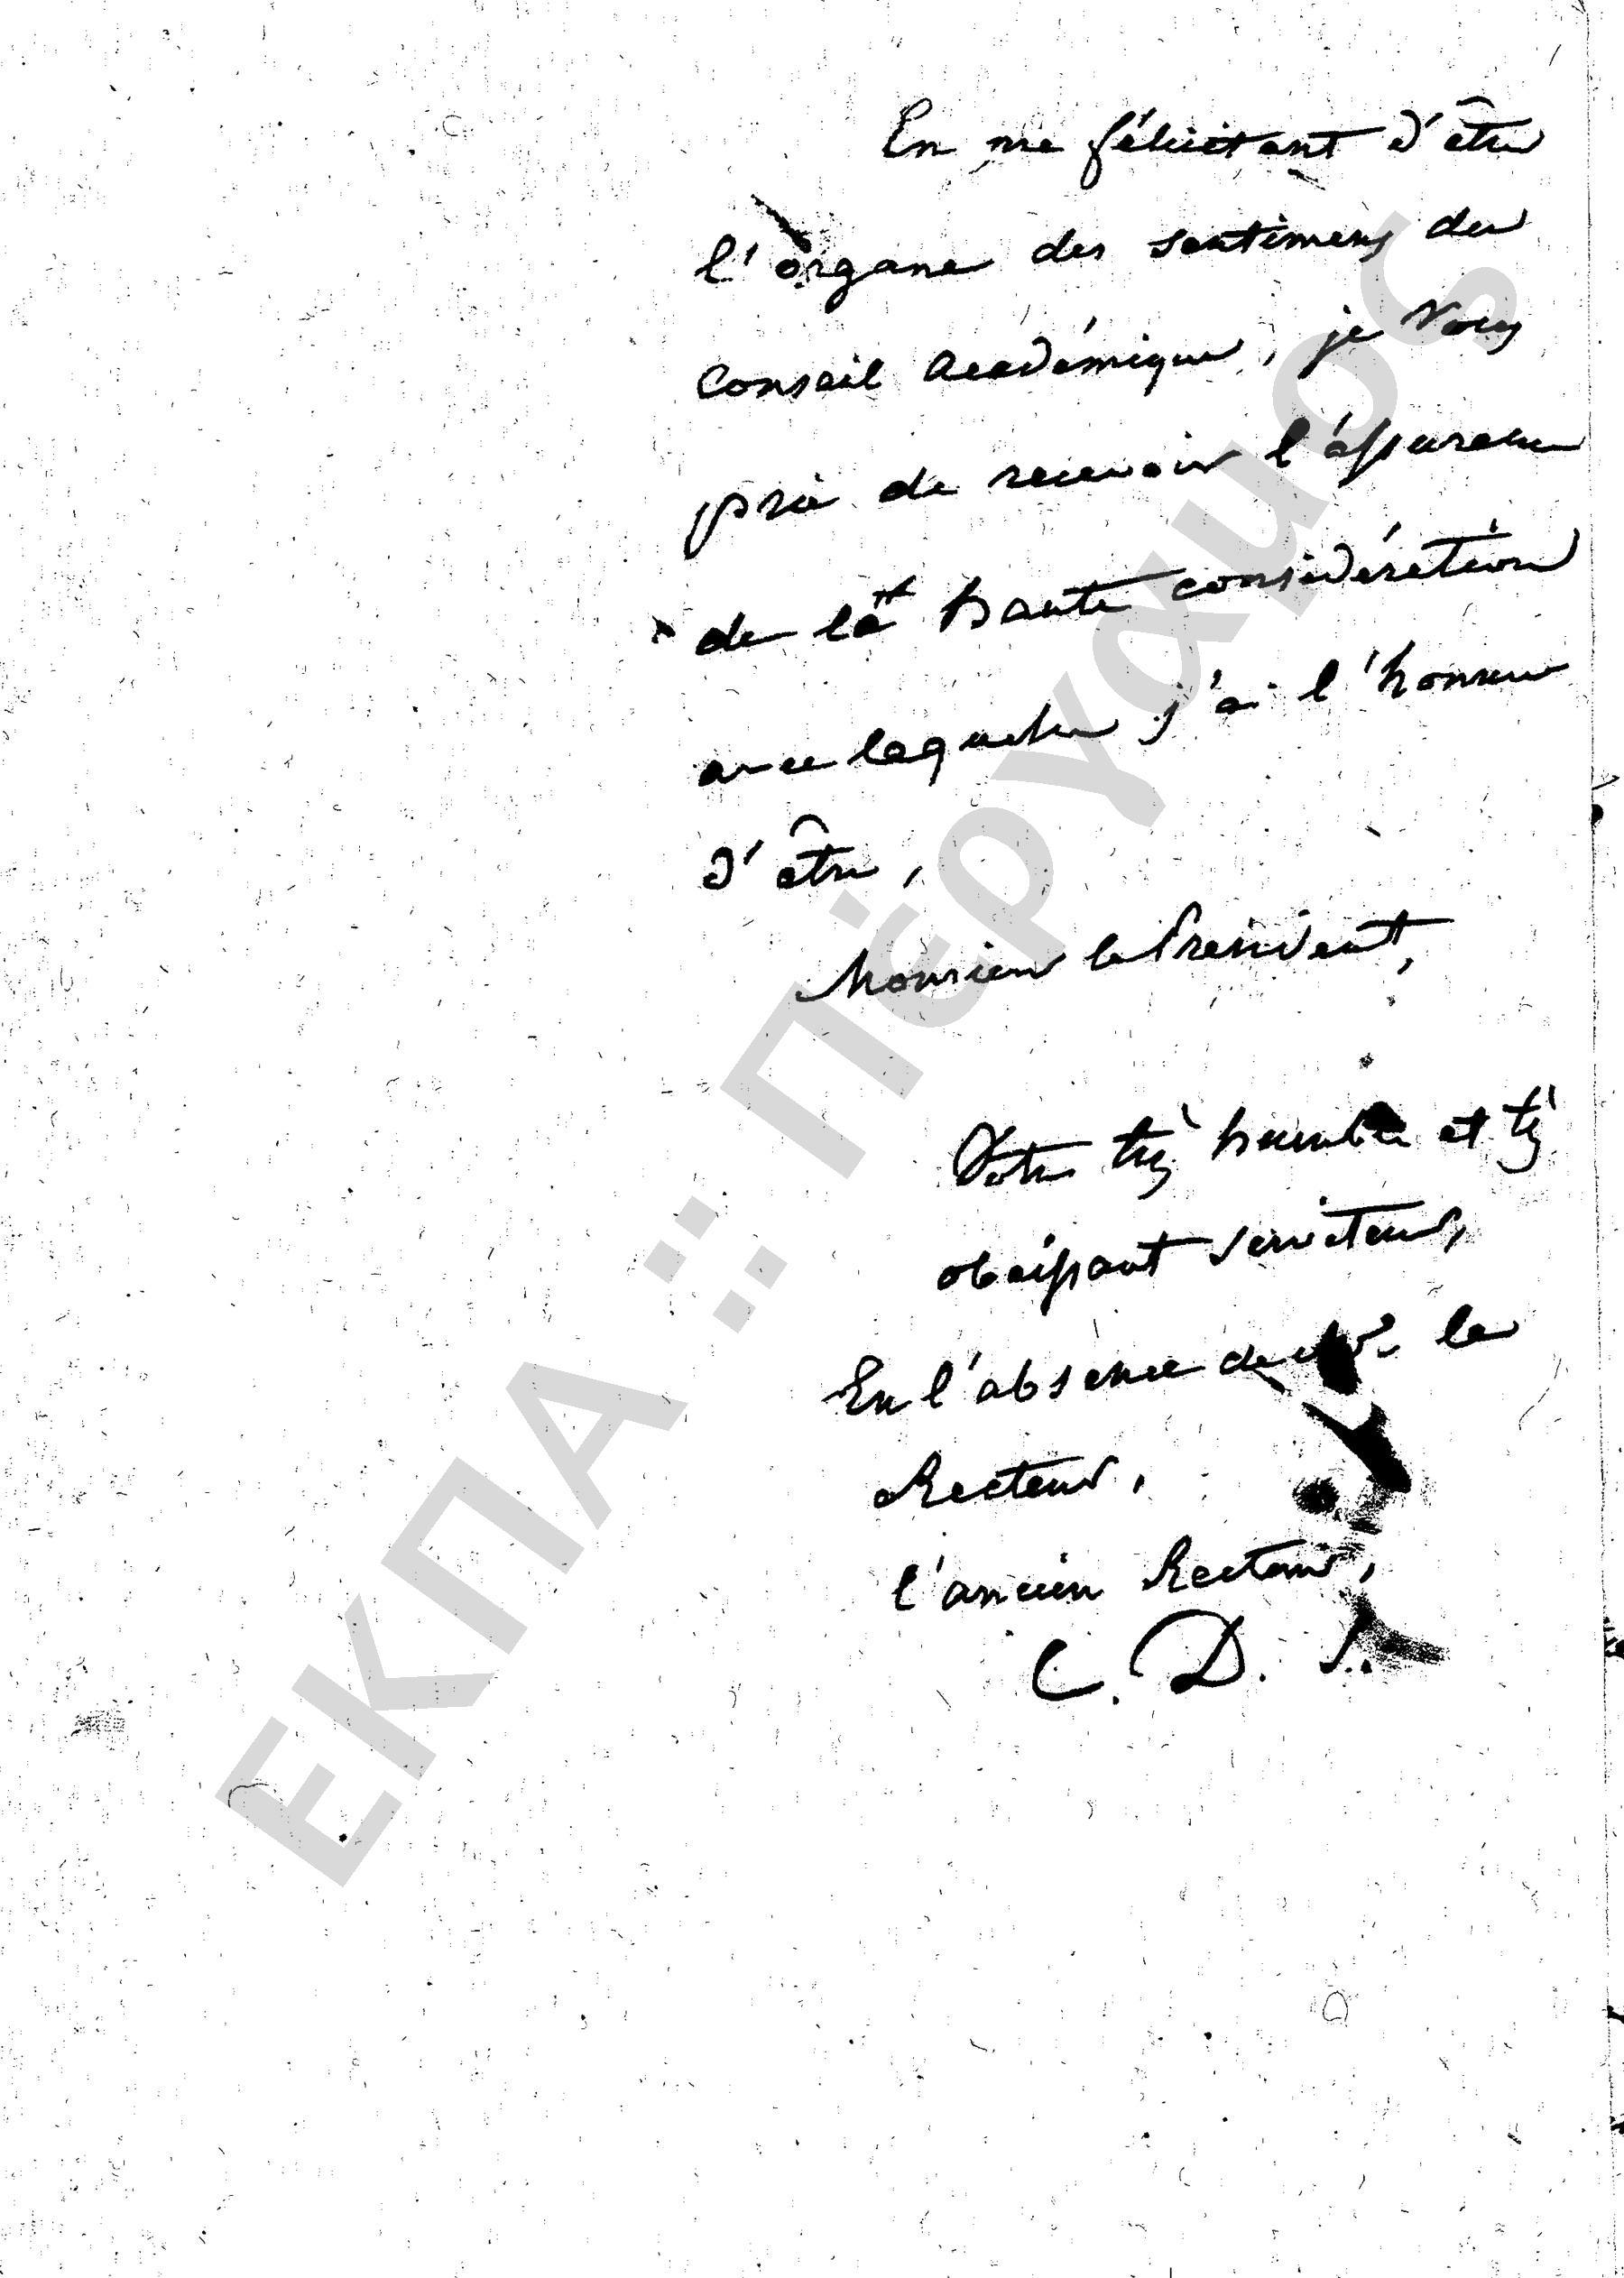 En me félicitant d'être
l'organe des sentimens du
Conseil Académique, je Vous
prie de recevoir l'assurance
de la haute considération
avec laquelle j'ai l'honneur
d'être,
Monsieur le President,
Votre très humble et très
obéissant serviteur,
En l'absence de le
Recteur,
l'ancien Recteur,
C. D. S.
ΕΚΠΑ :: Πέργαμος